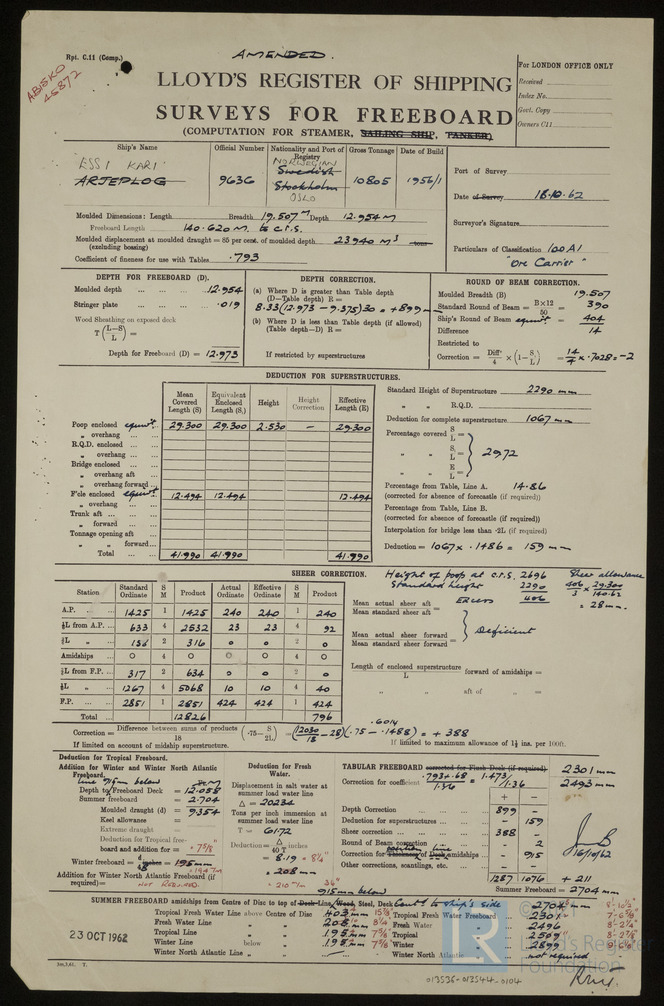 Rpt. C.11 (Comp.)
AMENDED.
ABISKO
45872
LLOYD'S REGISTER OF SHIPPING
SURVEYS FOR FREEBOARD
(COMPUTATION FOR STEAMER, SAILING SHIP, TANKER)
For LONDON OFFICE ONLY
Received
Index No.
Govt. Copy
Owners C11
Ship's Name Official Number Nationality and Port of Registry Gross Tonnage Date of Build
ESSI KARI
ARJEPLOG
9636
NORWEGIAN
Swedish
Stockholm
OSLO
10805
1956/1
Port of Survey
Date of Survey 18.10.62
Surveyor's Signature
Particulars of Classification 100A1
"Ore Carrier"
Moulded Dimensions: Length Breadth 19.507 M Depth 12.954 M
Freeboard Length 140.620 M. to c.r.s.
Moulded displacement at moulded draught = 85 per cent. of moulded depth 23940 M³ tons
(excluding bossing)
Coefficient of fineness for use with Tables .793
DEPTH FOR FREEBOARD (D).
Moulded depth 12.954
Stringer plate .019
Wood Sheathing on exposed deck
T (L-S/L) =
Depth for Freeboard (D) = 12.973
DEPTH CORRECTION.
(a) Where D is greater than Table depth
(D-Table depth) R =
8.33(12.973 - 9.375)30 = +899
(b) Where D is less than Table depth (if allowed)
(Table depth-D) R =
If restricted by superstructures
ROUND OF BEAM CORRECTION.
Moulded Breadth (B) 19.507
Standard Round of Beam = B×12/50 = 390
Ship's Round of Beam equivt = 404
Difference 14
Restricted to
Correction = Diff/4 × (1-S/L) = 14/4 × .7028 = -2
DEDUCTION FOR SUPERSTRUCTURES.
Mean Covered Length (S) Equivalent Enclosed Length (S₁) Height Height Correction Effective Length (E)
Poop enclosed equivt. 29.300 29.300 2.530 - 29.300
" overhang
R.Q.D. enclosed
" overhang
Bridge enclosed
" overhang aft
" overhang forward
F'cle enclosed equivt 12.494 12.494 12.494
" overhang
Trunk aft
" forward
Tonnage opening aft
" " forward
Total 41.990 41.990 41.990
Standard Height of Superstructure 2290 mm
" " R.Q.D.
Deduction for complete superstructure 1067 mm
Percentage covered S/L =
" " S₁/L = 29.72
" " E/L =
Percentage from Table, Line A. 14.86
(corrected for absence of forecastle (if required))
Percentage from Table, Line B.
(corrected for absence of forecastle (if required))
Interpolation for bridge less than ·2L (if required)
Deduction = 1067 × .1486 = 159 mm
SHEER CORRECTION.
Station Standard Ordinate S M Product Actual Ordinate Effective Ordinate S M Product
A.P. 1425 1 1425 240 240 1 240
⅙L from A.P. 633 4 2532 23 23 4 92
⅓L " 158 2 316 0 0 2 0
Amidships 0 4 0 0 0 4 0
⅓L from F.P. 317 2 634 0 0 2 0
⅙L " 1267 4 5068 10 10 4 40
F.P. 2851 1 2851 424 424 1 424
Total 12826 796
Height of poop at c.r.s. 2696
Standard height 2290
Excess 406
Sheer allowance
406/3 × 29.300/140.62
= 28 mm.
Mean actual sheer aft
Mean standard sheer aft =
Mean actual sheer forward
Mean standard sheer forward =
Deficient
Length of enclosed superstructure/L forward of amidships =
" " aft of " =
Correction = Difference between sums of products/18 (·75 - S/2L) = (12030/18 - 28)(.75 - .1488) = + 388
.6014
If limited on account of midship superstructure.
If limited to maximum allowance of 1½ ins. per 100ft.
Deduction for Tropical Freeboard.
Addition for Winter and Winter North Atlantic Freeboard.
line 915mm below
Depth to Freeboard Deck = 12.058
Summer freeboard = 2.704
Moulded draught (d) = 9354
Keel allowance =
Extreme draught =
Deduction for Tropical freeboard and addition for = 7⅝"
Winter freeboard = 195 mm
Addition for Winter North Atlantic Freeboard (if required) = NOT REQUIRED.
Deduction for Fresh Water.
Displacement in salt water at summer load water line
Δ = 20234
Tons per inch immersion at summer load water line
T = 61.72
Deduction = Δ/40T
= 8.19 = 8¼"
= 208 mm
= 210 mm
915mm below 36"
TABULAR FREEBOARD corrected for Flush Deck (if required) 2301 mm
Correction for coefficient .793+.68/1.36 = 1.473/1.36 2493 mm
+ -
Depth Correction 899 -
Deduction for superstructures - 159
Sheer correction 388 -
Round of Beam correction - 2
Correction for Thickness of Deck amidships position line - 915
Other corrections, scantlings, etc. - -
1287 1076 + 211
Summer Freeboard = 2704 mm
16/10/62
SUMMER FREEBOARD amidships from Centre of Disc to top of Deck Line, Wood, Steel, Deck Cont to ship's side 2704
Tropical Fresh Water Line above Centre of Disc 403 mm 15⅞"
Fresh Water Line " 208 mm 8¼"
Tropical Line " 195 mm 7⅝"
Winter Line below " 195 mm 7⅝"
Winter North Atlantic Line " "
Tropical Fresh Water Freeboard 2301
Fresh Water " 2496
Tropical " 2509
Winter " 2899
Winter North Atlantic " not required
23 OCT 1962
LR Lloyd's Register Foundation
013536-013544-0104